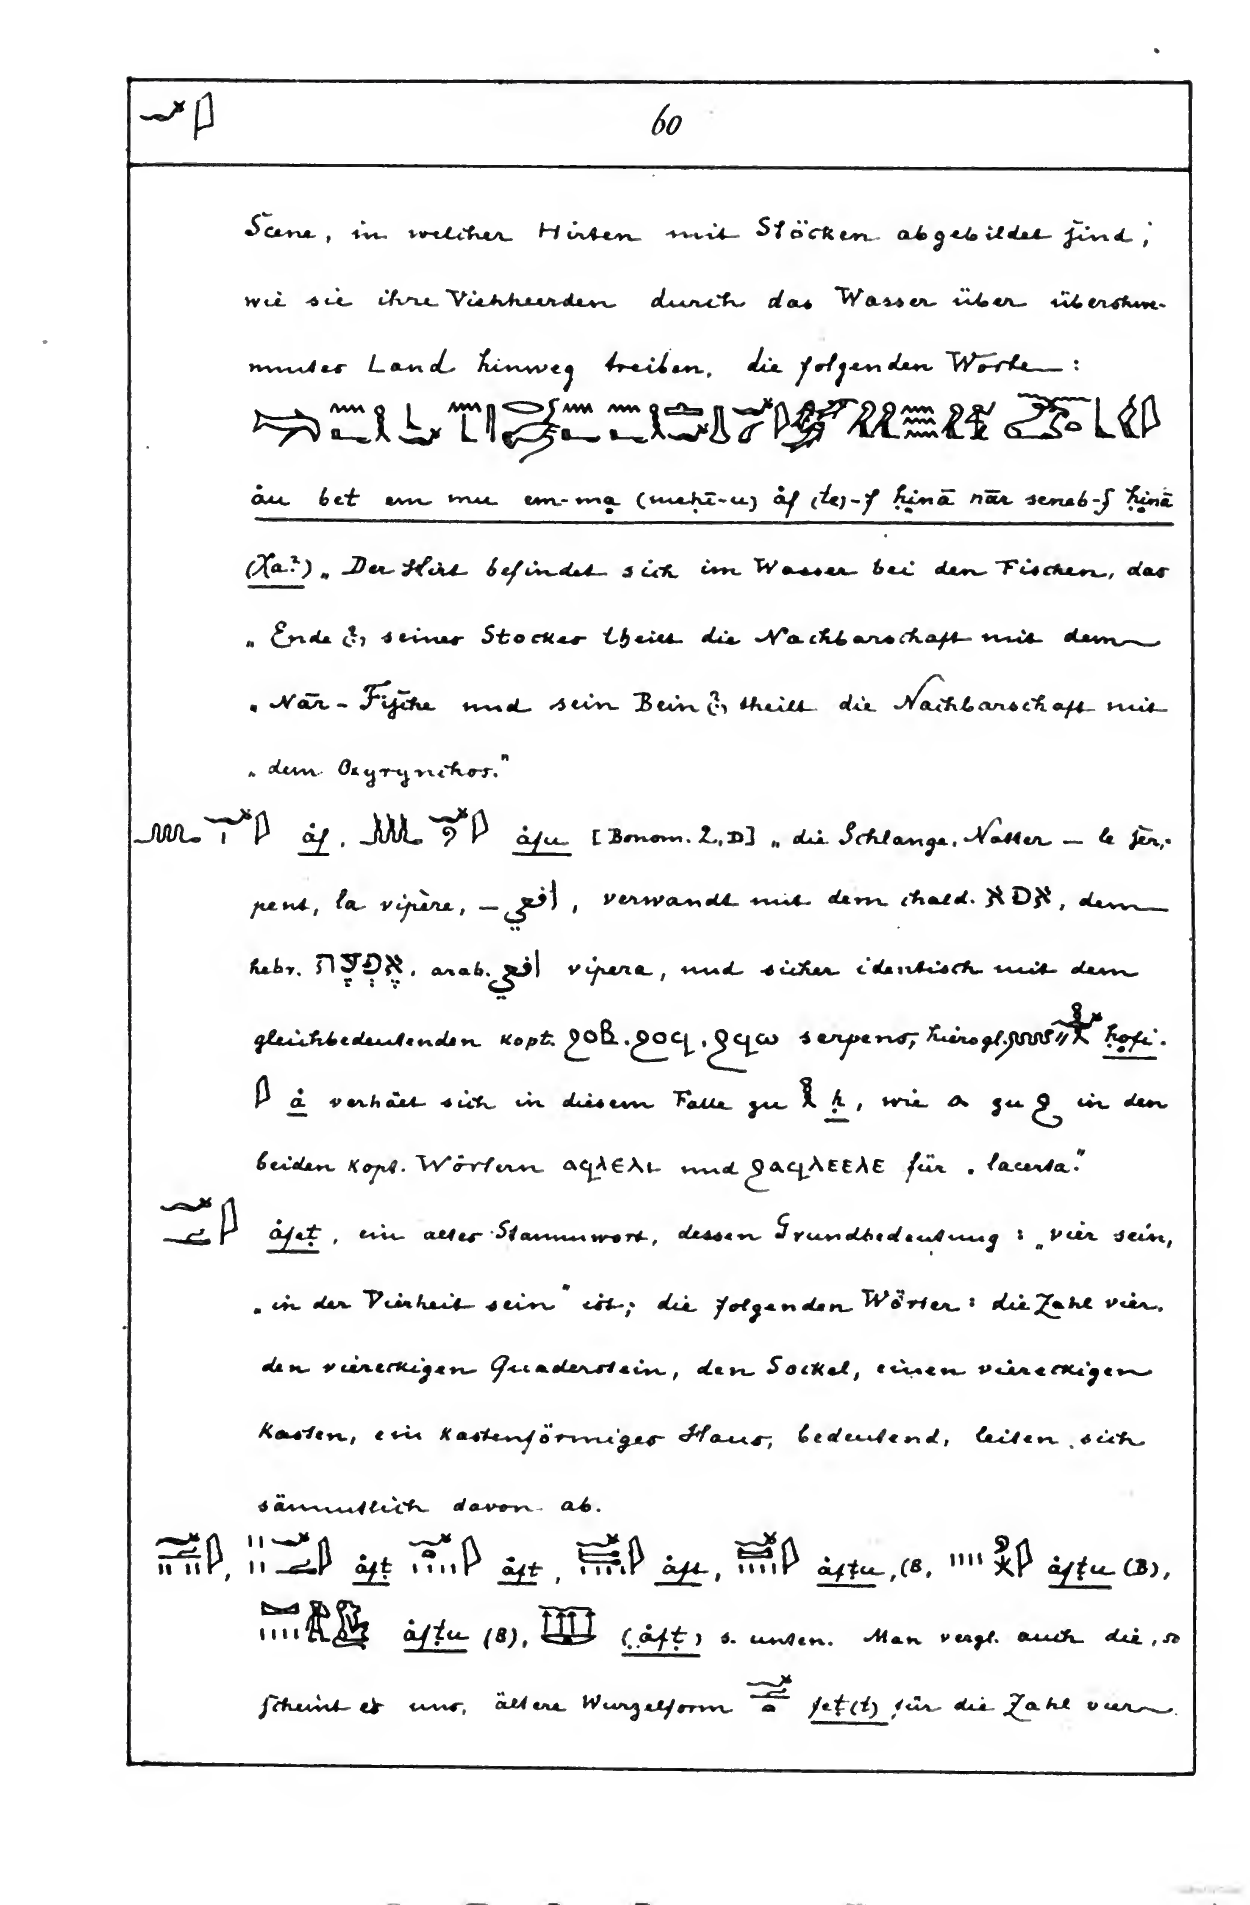 60
Scene, in welcher Hirten mit Stöcken abgebildet sind,
wie sie ihre Viehheerden durch das Wasser über überschwe-
mmtes Land hinweg treiben, die folgenden Worte:
åu bet em mu em-mạ (meḥī-u) åf (te)-f ḥịnā nār seneb-f ḥịnā
(χa?) „Der Hirt befindet sich im Wasser bei den Fischen, das
„Ende (?) seines Stockes theilt die Nachbarschaft mit dem
„Nār-Fische und sein Bein (?) theilt die Nachbarschaft mit
„dem Oxyrynchos."
åf, åfu [Bonom. 2, D] „die Schlange, Natter — le ser-
pent, la vipère, — افعي, verwandt mit dem chald. אפא, dem
hebr. אֶפְעֶה, arab. افعي vipera, und sicher identisch mit dem
gleichbedeutenden kopt. ϩⲟⲃ, ϩⲟϥ, ϩϥⲱ serpens, hierogl. ḥọfi.
å verhält sich in diesem Falle zu ḥ, wie ⲁ zu ϩ in den
beiden kopt. Wörtern ⲁϥⲗⲉⲗⲓ und ϩⲁϥⲗⲉⲉⲗⲉ für „lacerta."
åfeṭ, ein altes Stammwort, dessen Grundbedeutung: „vier sein,
„in der Vierheit sein" ist; die folgenden Wörter: die Zahl vier,
den viereckigen Quaderstein, den Sockel, einen viereckigen
Kasten, ein kastenförmiges Haus, bedeutend, leiten sich
sämmtlich davon ab.
åfṭ åft, åft, åfṭu, (B, åfṭu (B),
åfṭu (B), (åfṭ) s. unten. Man vergl. auch die, so
scheint es uns, ältere Wurzelform feṭ(t) für die Zahl vier